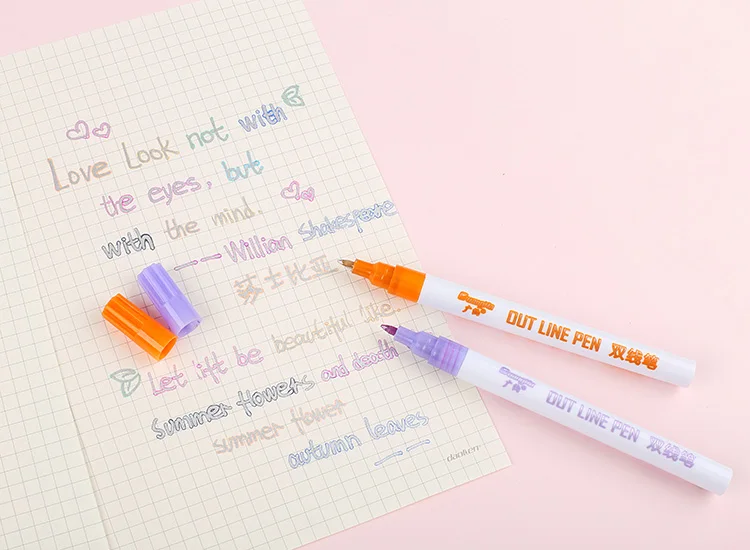 Love Look not with
the eyes, but
with the mind.
—— Willian Shakespeare
莎士比亚
Let lift be beautiful like
summer flowers and death
summer flower
autumn leaves
OUT LINE PEN 双线笔
OUT LINE PEN 双线笔